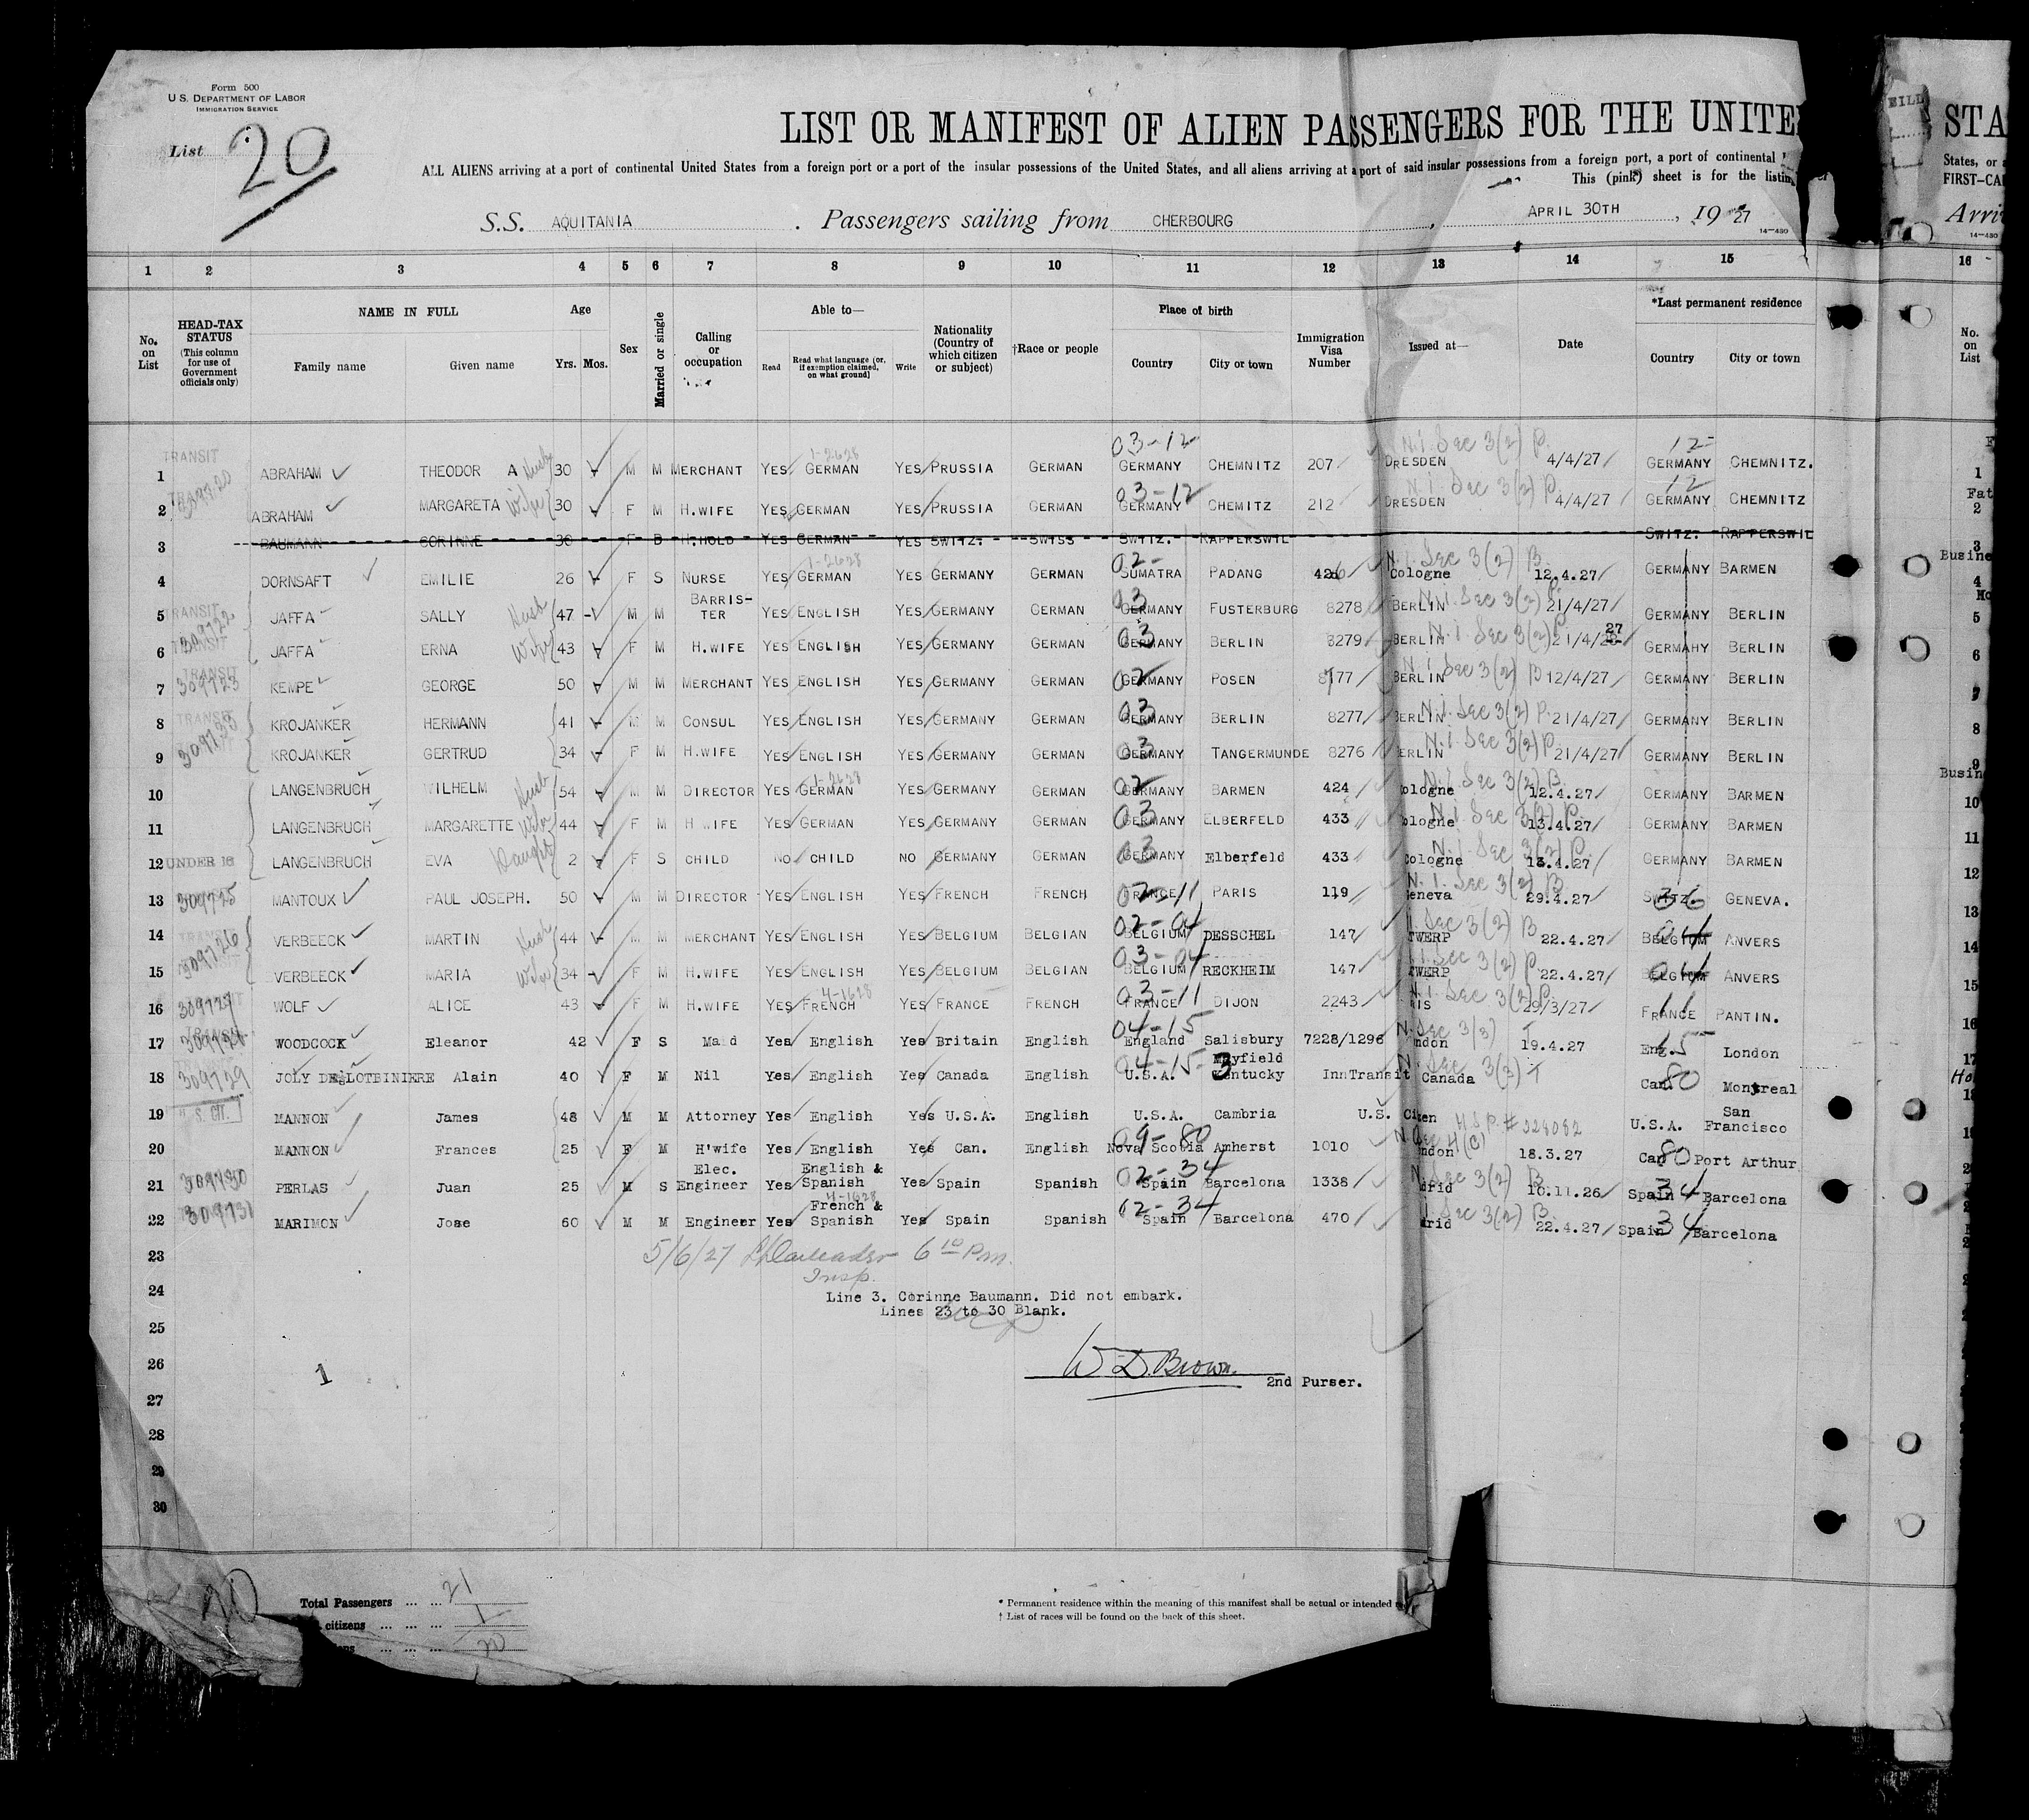 Form 500
U.S. DEPARTMENT OF LABOR
IMMIGRATION SERVICE
List 20
LIST OR MANIFEST OF ALIEN PASSENGERS FOR THE UNITE
STA
ALL ALIENS arriving at a port of continental United States from a foreign port or a port of the insular possessions of the United States, and all aliens arriving at a port of said insular possessions from a foreign port, a port of continental
States, or
This (pink) sheet is for the listing
FIRST-CA
S.S. AQUITANIA. Passengers sailing from CHERBOURG, APRIL 30TH, 1927
Arri
14-430
14-430
1 2 3 4 5 6 7 8 9 10 11 12 13 14 15 16
No. on List
HEAD-TAX STATUS (This column for use of Government officials only)
NAME IN FULL
Family name Given name
Age
Yrs. Mos.
Sex
Married or single
Calling or occupation
Able to—
Read Read what language (or, if exemption claimed, on what ground) Write
Nationality (Country of which citizen or subject)
†Race or people
Place of birth
Country City or town
Immigration Visa Number
Issued at—
Date
*Last permanent residence
Country City or town
No. on List
1 TRANSIT ABRAHAM THEODOR A Husb 30 M M MERCHANT YES GERMAN 1-2628 YES PRUSSIA GERMAN 03-12 GERMANY CHEMNITZ 207 DRESDEN N.I. Sec 3(2) P. 4/4/27 12 GERMANY CHEMNITZ. 1
2 TRANSIT ABRAHAM MARGARETA Wife 30 F M H.WIFE YES GERMAN YES PRUSSIA GERMAN 03-12 GERMANY CHEMITZ 212 DRESDEN N.I. Sec 3(2) P. 4/4/27 12 GERMANY CHEMNITZ Fat 2
3 BAUMANN CORINNE 30 F D H.HOLD YES GERMAN YES SWITZ. SWISS SWITZ. RAPPERSWIL SWITZ. RAPPERSWIL 3
4 DORNSAFT EMILIE 26 F S NURSE YES GERMAN 1-2628 YES GERMANY GERMAN 02- SUMATRA PADANG 426 Cologne N.I. Sec 3(2) B. 12.4.27 GERMANY BARMEN Busine 4
5 TRANSIT 309722 JAFFA SALLY Husb 47 M M BARRIS-TER YES ENGLISH YES GERMANY GERMAN 03 GERMANY FUSTERBURG 8278 BERLIN N.I. Sec 3(2) 21/4/27 GERMANY BERLIN 5
6 TRANSIT JAFFA ERNA Wife 43 F M H.WIFE YES ENGLISH YES GERMANY GERMAN 03 GERMANY BERLIN 8279 BERLIN N.I. Sec 3(2) P. 21/4/27 GERMAHY BERLIN 6
7 TRANSIT 309723 KEMPE GEORGE 50 M M MERCHANT YES ENGLISH YES GERMANY GERMAN 02 GERMANY POSEN 8177 BERLIN N.I. Sec 3(2) B 12/4/27 GERMANY BERLIN 7
8 TRANSIT KROJANKER HERMANN 41 M M CONSUL YES ENGLISH YES GERMANY GERMAN 03 GERMANY BERLIN 8277 BERLIN N.I. Sec 3(2) P. 21/4/27 GERMANY BERLIN 8
9 KROJANKER GERTRUD 34 F M H.WIFE YES ENGLISH YES GERMANY GERMAN 03 GERMANY TANGERMUNDE 8276 ERLIN N.I. Sec 3(2) P. 21/4/27 GERMANY BERLIN 9
10 LANGENBRUCH WILHELM Husb 54 M M DIRECTOR YES GERMAN 1-2628 YES GERMANY GERMAN 02 GERMANY BARMEN 424 ologne N.I. Sec 3(2) B. 12.4.27 GERMANY BARMEN Busine 10
11 LANGENBRUCH MARGARETTE Wife 44 F M H WIFE YES GERMAN YES GERMANY GERMAN 03 GERMANY ELBERFELD 433 ologne N.I. Sec 3(2) P. 13.4.27 GERMANY BARMEN 11
12 UNDER 16 LANGENBRUCH EVA Daught 2 F S CHILD NO CHILD NO GERMANY GERMAN 03 GERMANY Elberfeld 433 ologne N.I. Sec 3(2) P. 13.4.27 GERMANY BARMEN 12
13 309725 MANTOUX PAUL JOSEPH. 50 M M DIRECTOR YES ENGLISH YES FRENCH FRENCH 02-11 FRANCE PARIS 119 eneva N.I. Sec 3(2) B 29.4.27 36 SWITZ. GENEVA. 13
14 309726 VERBEECK MARTIN Husb 44 M M MERCHANT YES ENGLISH YES BELGIUM BELGIAN 02-04 BELGIUM DESSCHEL 147 TWERP Sec 3(2) B 22.4.27 04 BELGIUM ANVERS 14
15 VERBEECK MARIA Wife 34 F M H.WIFE YES ENGLISH YES BELGIUM BELGIAN 03-04 BELGIUM RECKHEIM 147 TWERP Sec 3(2) P. 22.4.27 04 BELGIUM ANVERS 15
16 309727 WOLF ALICE 43 F M H.WIFE YES FRENCH 4-1628 YES FRANCE FRENCH 03-11 FRANCE DIJON 2243 IS N.I. Sec 3(2) P. 29/3/27 11 FRANCE PANTIN. 16
17 TRANSIT WOODCOCK Eleanor 42 F S Maid Yes English Yes Britain English 04-15 England Salisbury 7228/1296 ndon N. Sec 3(3) T 19.4.27 15 Eng. London 17
18 309729 JOLY DE LOTBINIERE Alain 40 F M Nil Yes English Yes Canada English 04-15-3 U.S.A. Mayfield Kentucky InnTransit Canada Sec 3(3) T 80 Can. Montreal
19 U.S. CIT. MANNON James 48 M M Attorney Yes English Yes U.S.A. English U.S.A. Cambria U.S. Citen U.S.P. # 228082 U.S.A. San Francisco
20 MANNON Frances 25 F M H'wife Yes English Yes Can. English 09-80 Nova Scotia Amherst 1010 ndon 4(C) 18.3.27 80 Can Port Arthur
21 309730 PERLAS Juan 25 M S Elec. Engineer Yes English & Spanish Yes Spain Spanish 02-34 Spain Barcelona 1338 drid N. Sec 3(2) B 10.11.26 34 Spain Barcelona
22 309731 MARIMON Jose 60 M M Engineer Yes French & Spanish 4-1628 Yes Spain Spanish 02-34 Spain Barcelona 470 rid Sec 3(2) B. 22.4.27 34 Spain Barcelona
23 5/6/27 6 10 P.m.
Insp.
24 Line 3. Corinne Baumann. Did not embark.
Lines 23 to 30 Blank.
25
26 1 W. D. Brown.
2nd Purser.
27
28
29
30
20
Total Passengers ... ... 21
citizens ... ... ... 1
ens ... ... ... 20
* Permanent residence within the meaning of this manifest shall be actual or intended
† List of races will be found on the back of this sheet.